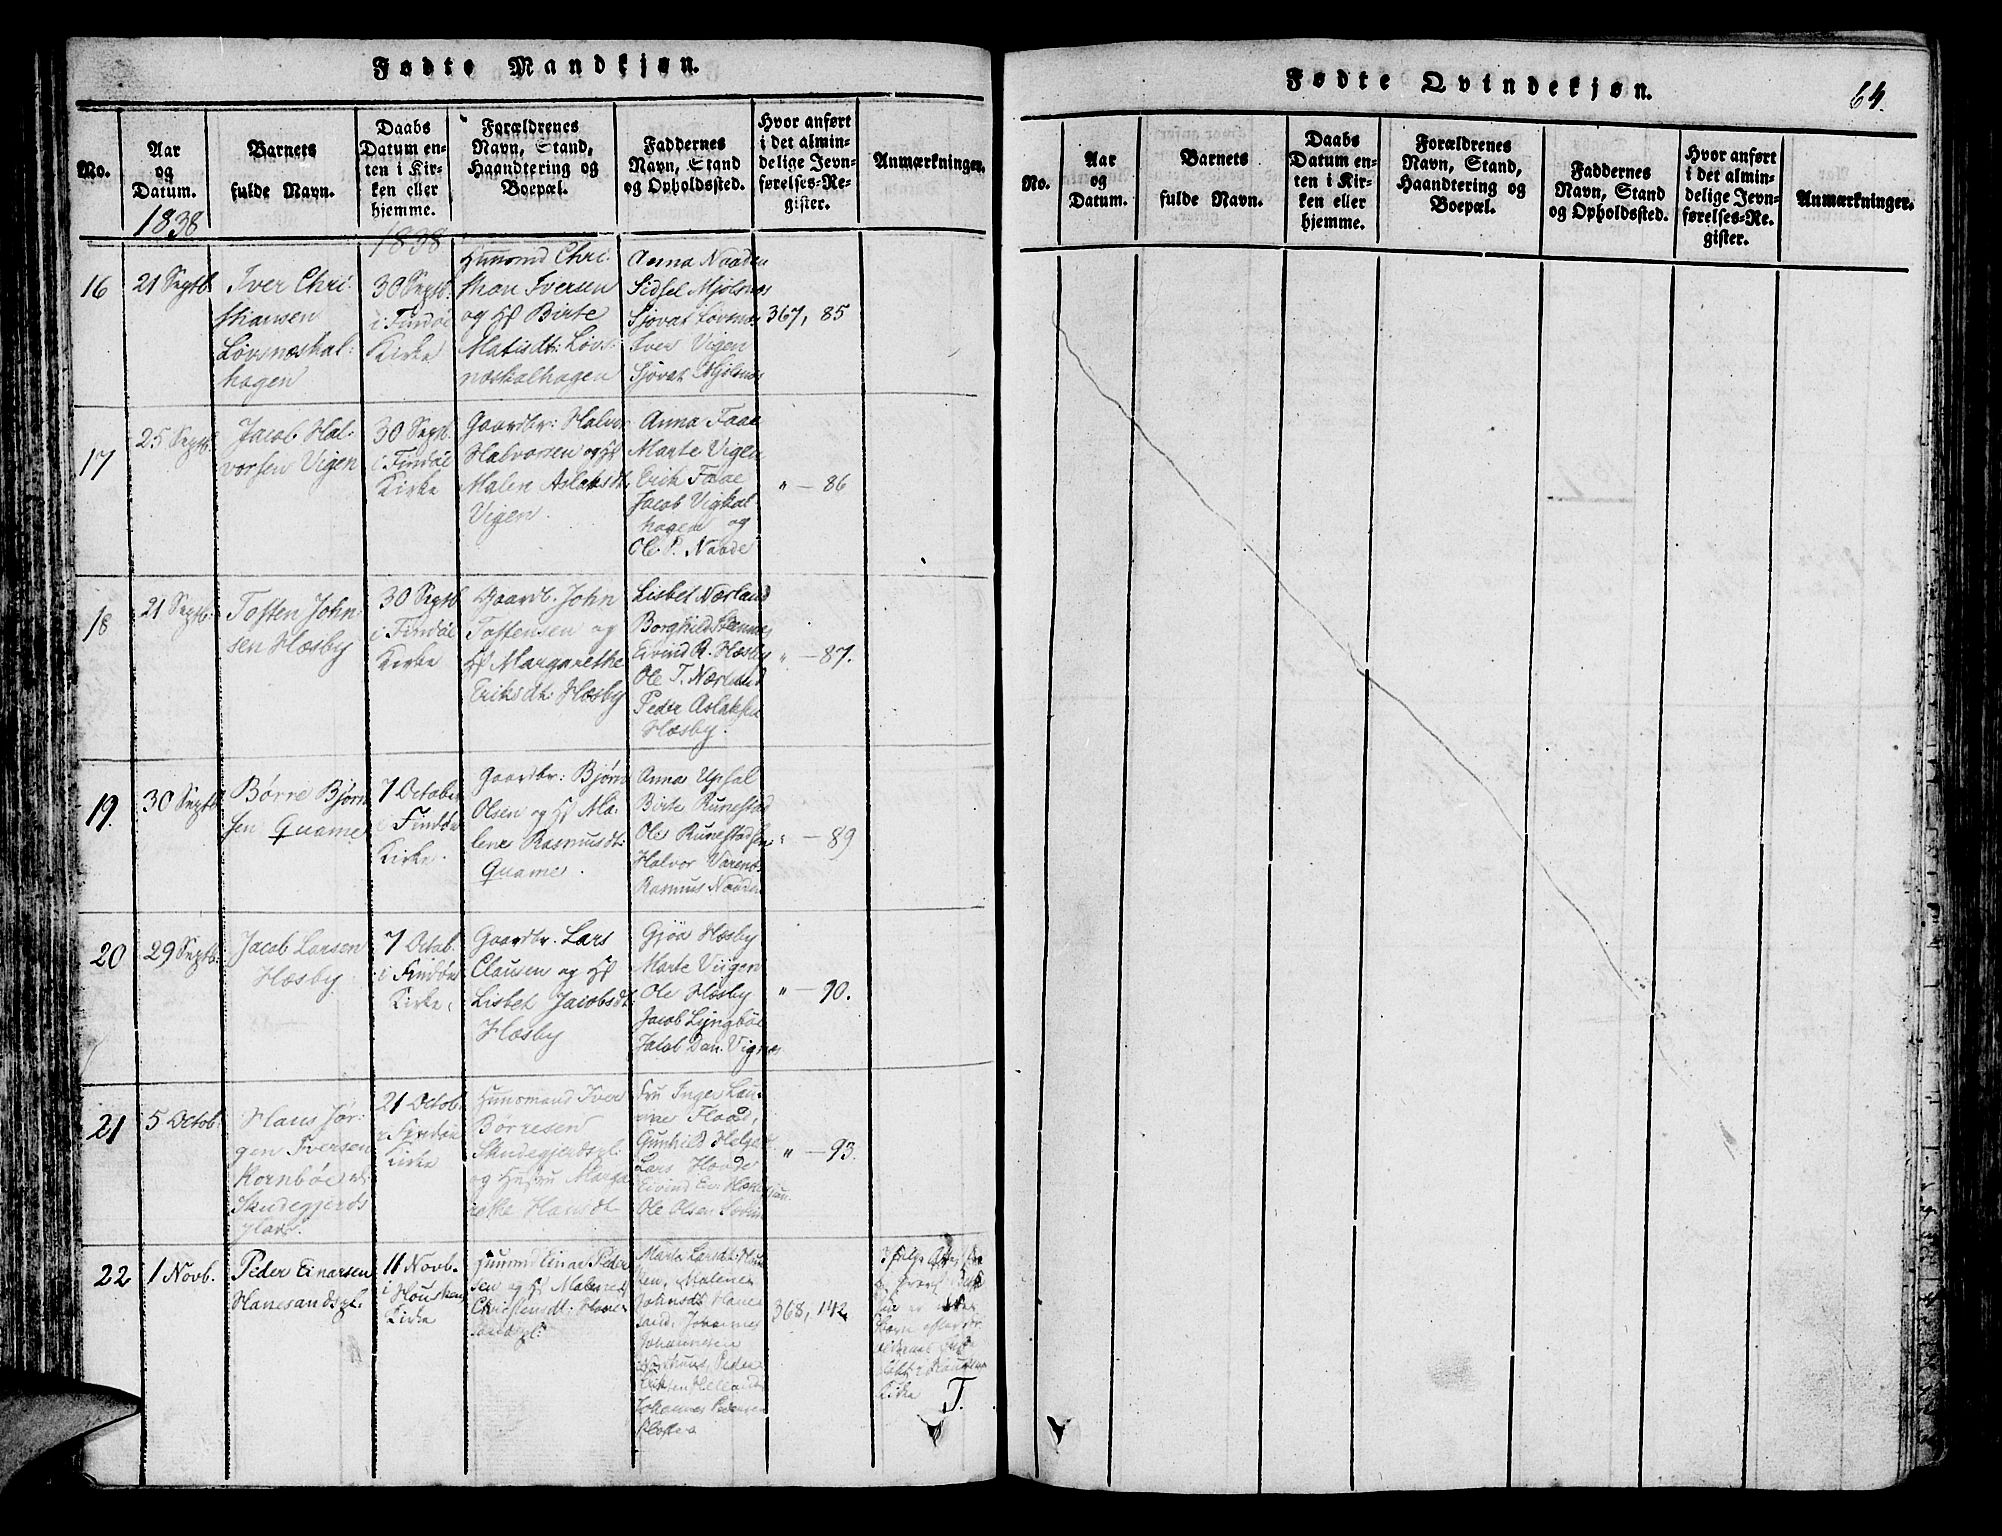 Fødte Mandkjøn.
No.
Aar
og
Datum.
1838
Barnets
fulde Navn.
Daabs
Datum en-
ten i Kir-
ken eller
hjemme.
1838
Forældrenes
Navn, Stand,
Haandtering og
Boepæl.
Faddernes
Navn, Stand
og Opholdssted.
Hvor anført
i det almin-
delige Jevn-
førelses-Re-
gister.
Anmærkninger.
16
21 Septb.
Iver Chri-
stiansen
Løvsnæskal-
hagen
30 Septb.
i Findöe
Kirke
Huusmd Chri-
stian Iversen
og Hf Birte
Matisdt: Løvs-
næskalhagen
Anna Naaden
Sidsel Mjølsnæs
Sjovat Løvsnæs
Iver Vigen
Sjovat Mjølsnæs
367, 85
17
25 Septb.
Jacob Hal-
vorsen Vigen
30 Septb.
i Findöe
Kirke
Gaardbr: Halvor
Halvorsen og Hf
Malen Aslaksdt
Vigen.
Anna Faae
Marte Vigen
Erik Faae
Jacob Vigkal-
hagen og
Ole P. Naade
" — 86
18
21 Septb.
Tosten John-
sen Hæsby
30 Septb
i Findöe
Kirke
Gaardb. John
Tostensen og
Hf Margarethe
Eriksdt: Hæsby
Lisbet Nærland
Borghild
Eivind R. Hæsby
Ole T. Nærland
Peder Aslaksen
Hæsby.
" — 87.
19.
30 Septb
Børre Bjørn-
sen Quame
7 October
i Findöe
Kirke.
Gaardbr: Bjørn
Olsen og Hf Ma-
lene Rasmusdt:
Quame.
Anna Upsal
Birte Runestad
Ole Runestad
Halvor
Rasmus Naaden
" — 89
20
29 Septb:
Jacob Larsen
Hæsby
7 Octob.
i Findöe
Kirke.
Gaardbr. Lars
Clausen og Hf
Lisbet Jacobsdt:
Hæsby
Gjøa Hæsby
Marte Viigen
Ole Hæsby
Jacob Lyngböe
Jacob Dan. Vignæs
" — 90.
21
5 Octob.
Hans Jør-
gen Iversen
Kornböe
Sandegjerds
plads.
21 Octob.
i Findöe
Kirke
Huusmand Iver
Børresen
Sandegjerdspl:
og Hustru Marga-
rethe Hansdt.
Fru Inger
Flood,
Gunhild
Lars
Eivind
Ole Olsen
" — 93.
22
1 Novb.
Peder Einarsen
Hanesandspl.
11 Novb.
i Houskens
Kirke
Huusmd Einar Peder-
sen og Hf Malene
Christensdt: Hane-
sandspl:
Marta Larsdt:
Malene
Johnsdt Hane-
sand, Johannes
Johannesen
Peder
Eriksen Helland
Johannes Pedersen
368, 142
Kirke
T.
Fødte Qvindekjøn.
64.
No.
Aar
og
Datum.
Barnets
fulde Navn.
Daabs
Datum en-
ten i Kir-
ken eller
hjemme.
Forældrenes
Navn, Stand,
Haandtering og
Boepæl.
Faddernes
Navn, Stand
og Opholdssted.
Hvor anført
i det almin-
delige Jevn-
førelses-Re-
gister.
Anmærkninger.